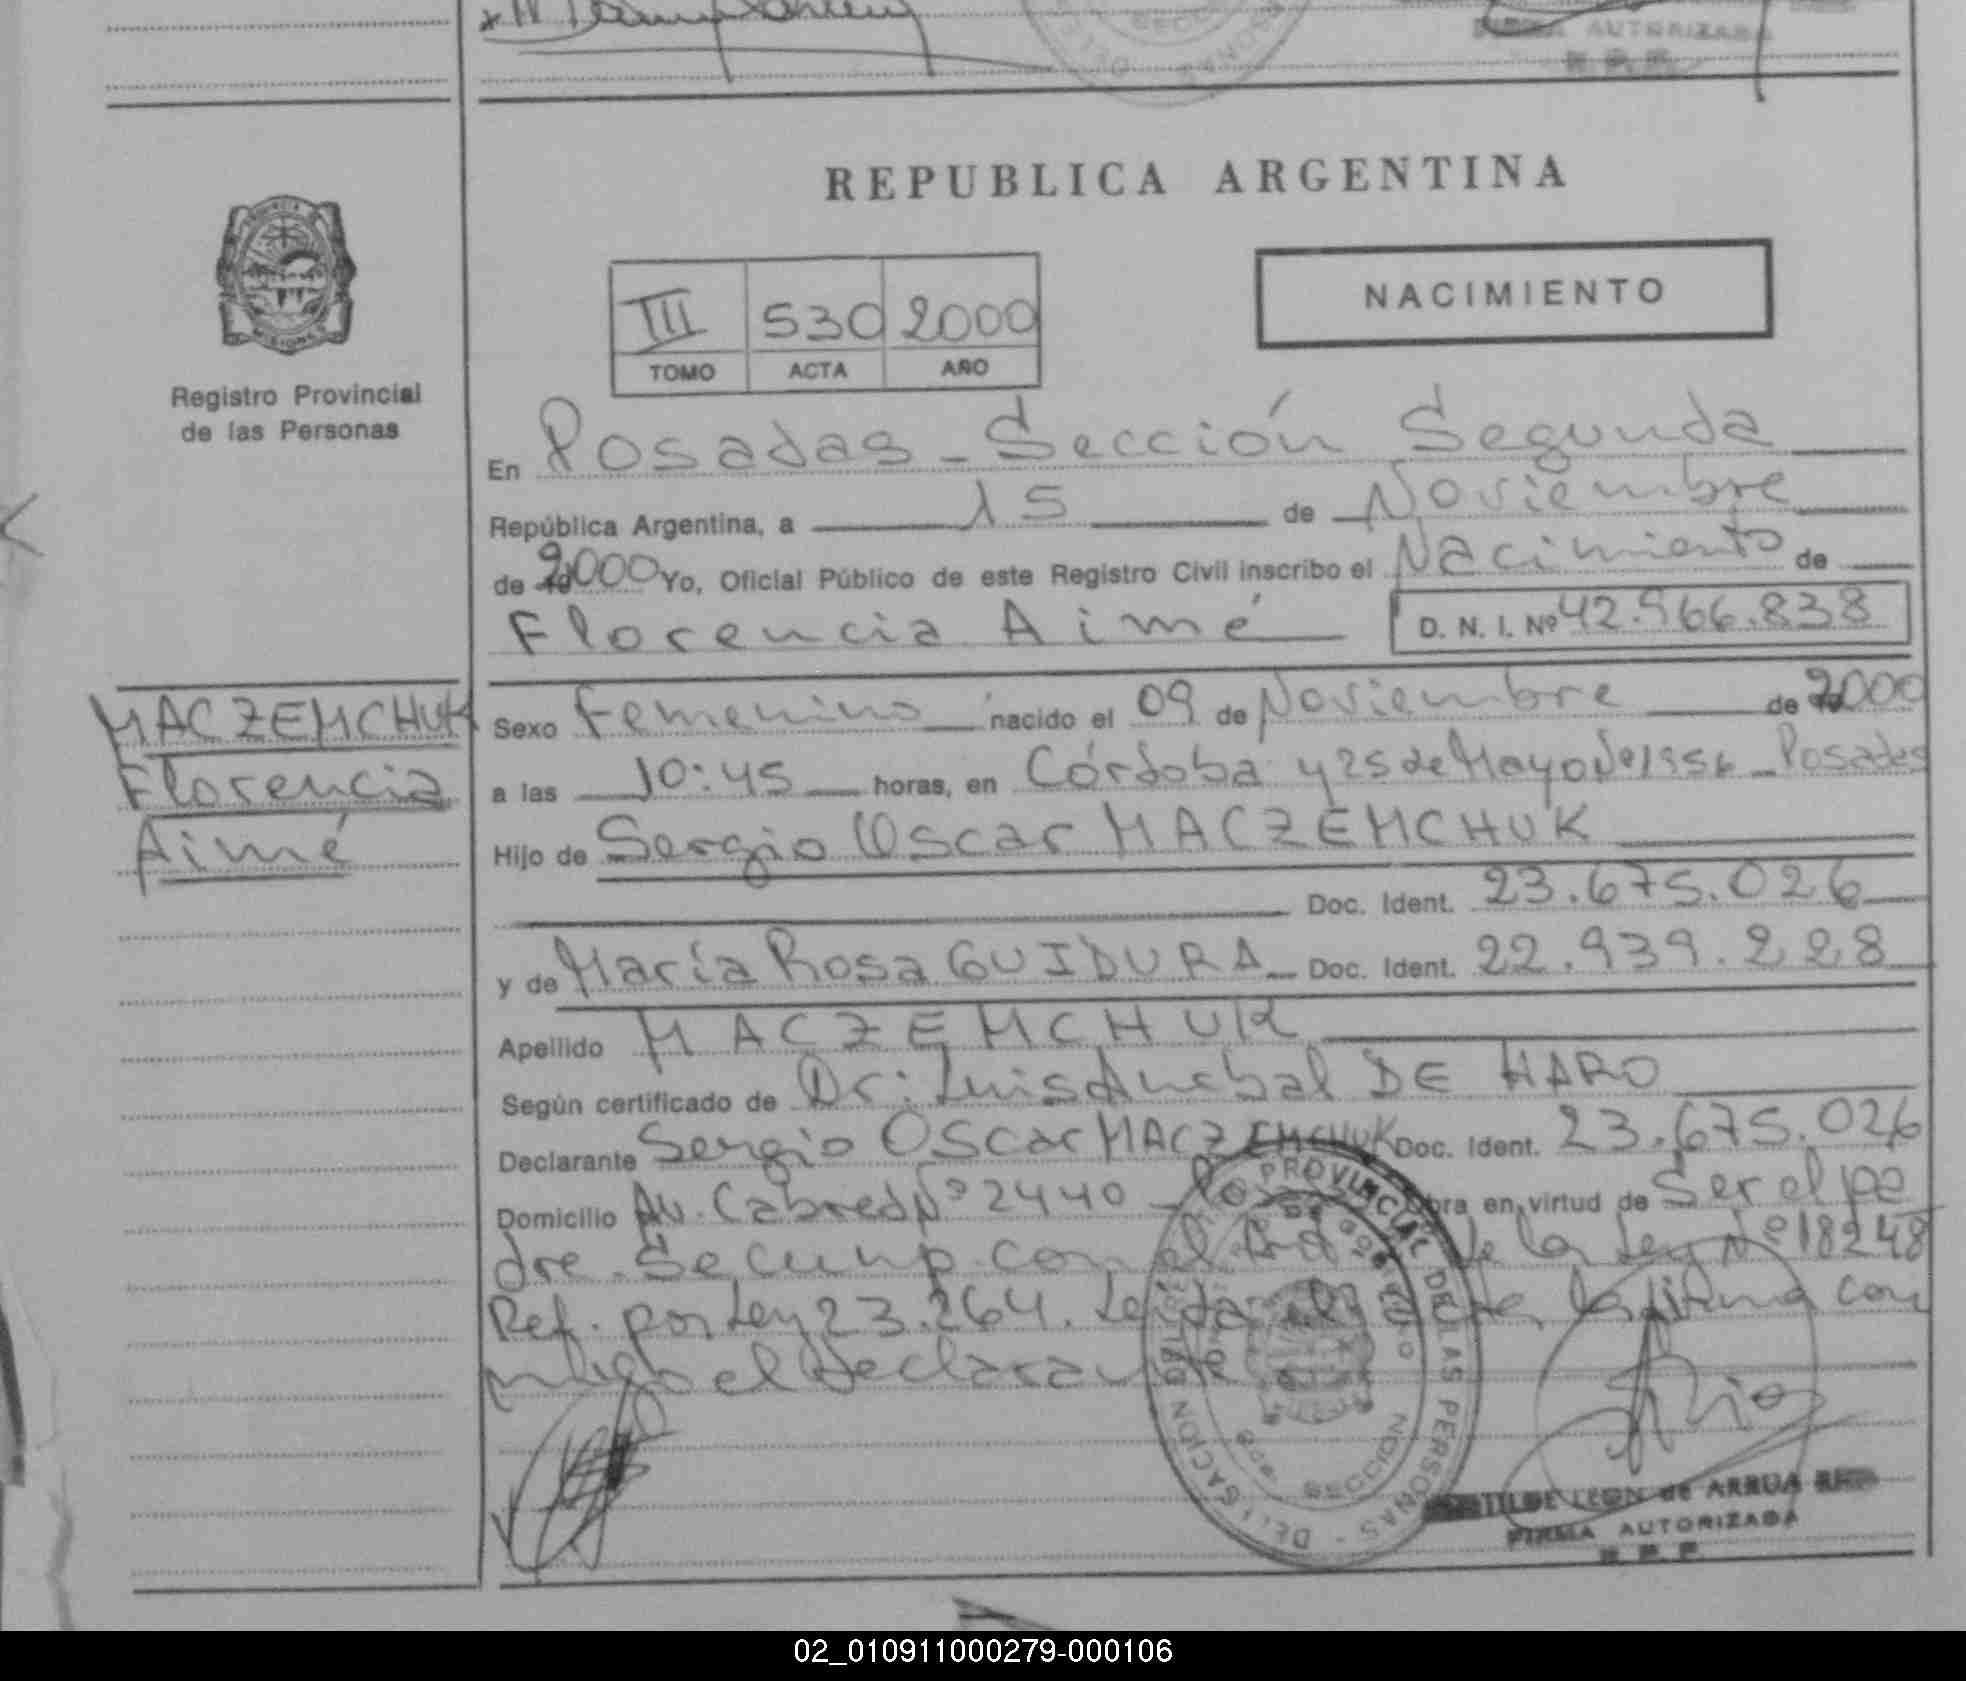 FIRMA AUTORIZADA
R. P. P.
REPUBLICA ARGENTINA
PROVINCIA DE MISIONES
Registro Provincial
de las Personas
III 530 2000
TOMO ACTA AÑO
NACIMIENTO
En Posadas - Sección Segunda
República Argentina, a 15 de Noviembre
de 2000 Yo, Oficial Público de este Registro Civil inscribo el Nacimiento de
Florencia Aimé D. N. I. Nº 42.966.838
MACZEMCHUK
Florencia
Aimé
Sexo Femenino nacido el 09 de Noviembre de 2000
a las 10:45 horas, en Córdoba y 25 de Mayo Nº 1956 - Posadas
Hijo de Sergio Oscar MACZEMCHUK
Doc. Ident. 23.675.026
y de María Rosa GUIDURA Doc. Ident. 22.939.228
Apellido MACZEMCHUK
Según certificado de Dr: Luis Anibal DE HARO
Declarante Sergio Oscar MACZEMCHUK Doc. Ident. 23.675.026
Domicilio Av. Cabred Nº 2440 - Obra en virtud de Ser el pa
dre. Se cump. con el Art de la Ley Nº 18248
Ref. por Ley 23.264. Leída el acta, la firma con
migo el declarante
PROVINCIAL DE LAS PERSONAS - DELEGACION
SECCION
MATILDE LEON de ARRUA
FIRMA AUTORIZADA
R. P. P.
02_010911000279-000106